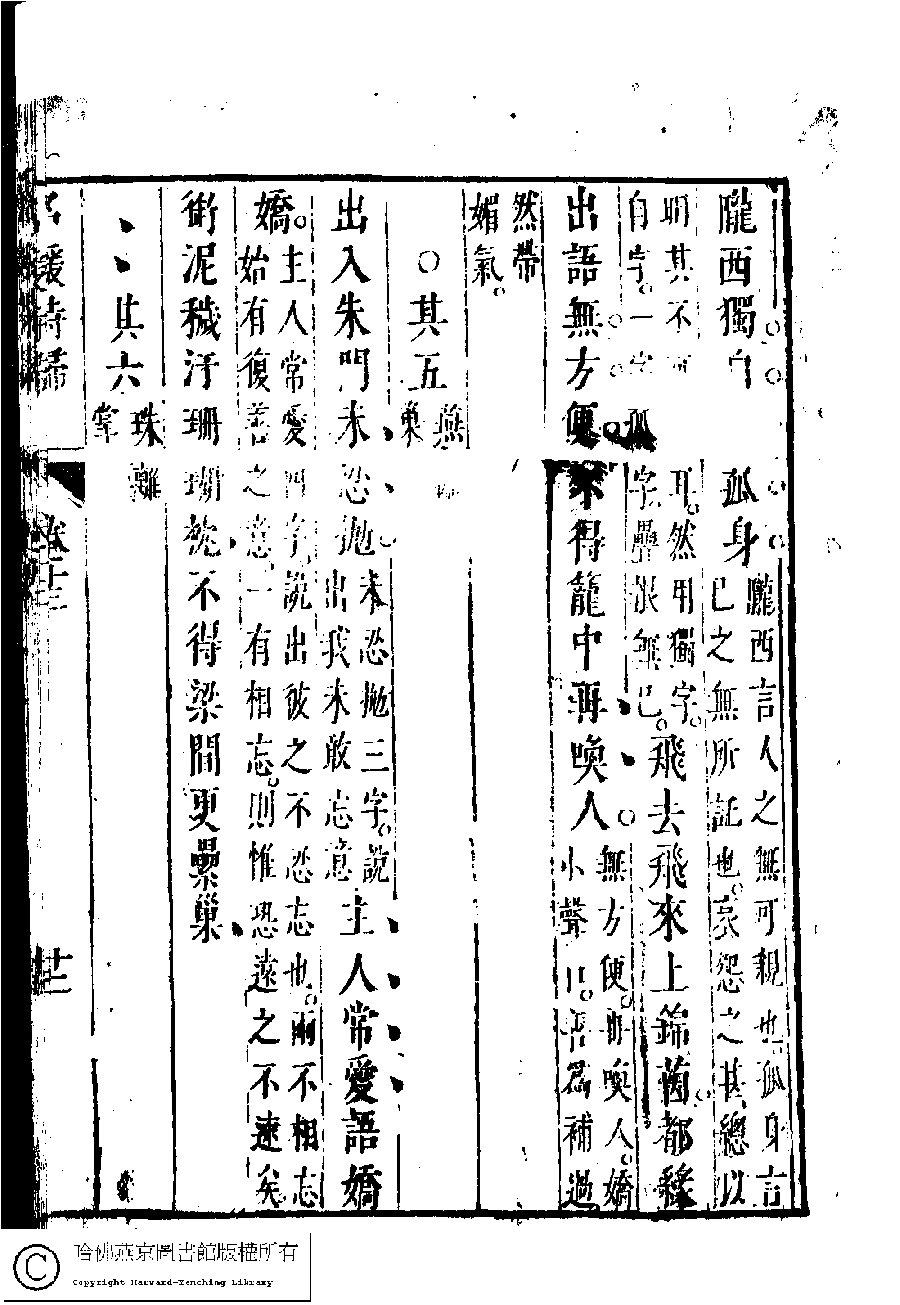 隴西獨自孤身
隴西言人之無可親也孤身言
已之無所託也。哀怨之甚總以
明其不可耳。然用獨字。
自字。一字孤字疊恨無已。
飛去飛來上錦茵都緣
出語無方便不得籠中再喚人
無方便。再喚人。嬌
小聲口。善為補過
然帶
媚氣。
○其五
燕離
巢
出入朱門未恐拋
未恐拋三字。說
出我未敢忘意
主人常愛語嬌
嬌。
主人常愛四字。說出彼之不恐忘也。兩不相忘
始有復善之意。一有相忘。則惟恐遠之不速矣
銜泥穢汙珊瑚枕不得梁間更壘巢
其六
珠離
掌
名媛詩歸
卷十三
哈佛燕京圖書館版權所有
Copyright Harvard-Yenching Library